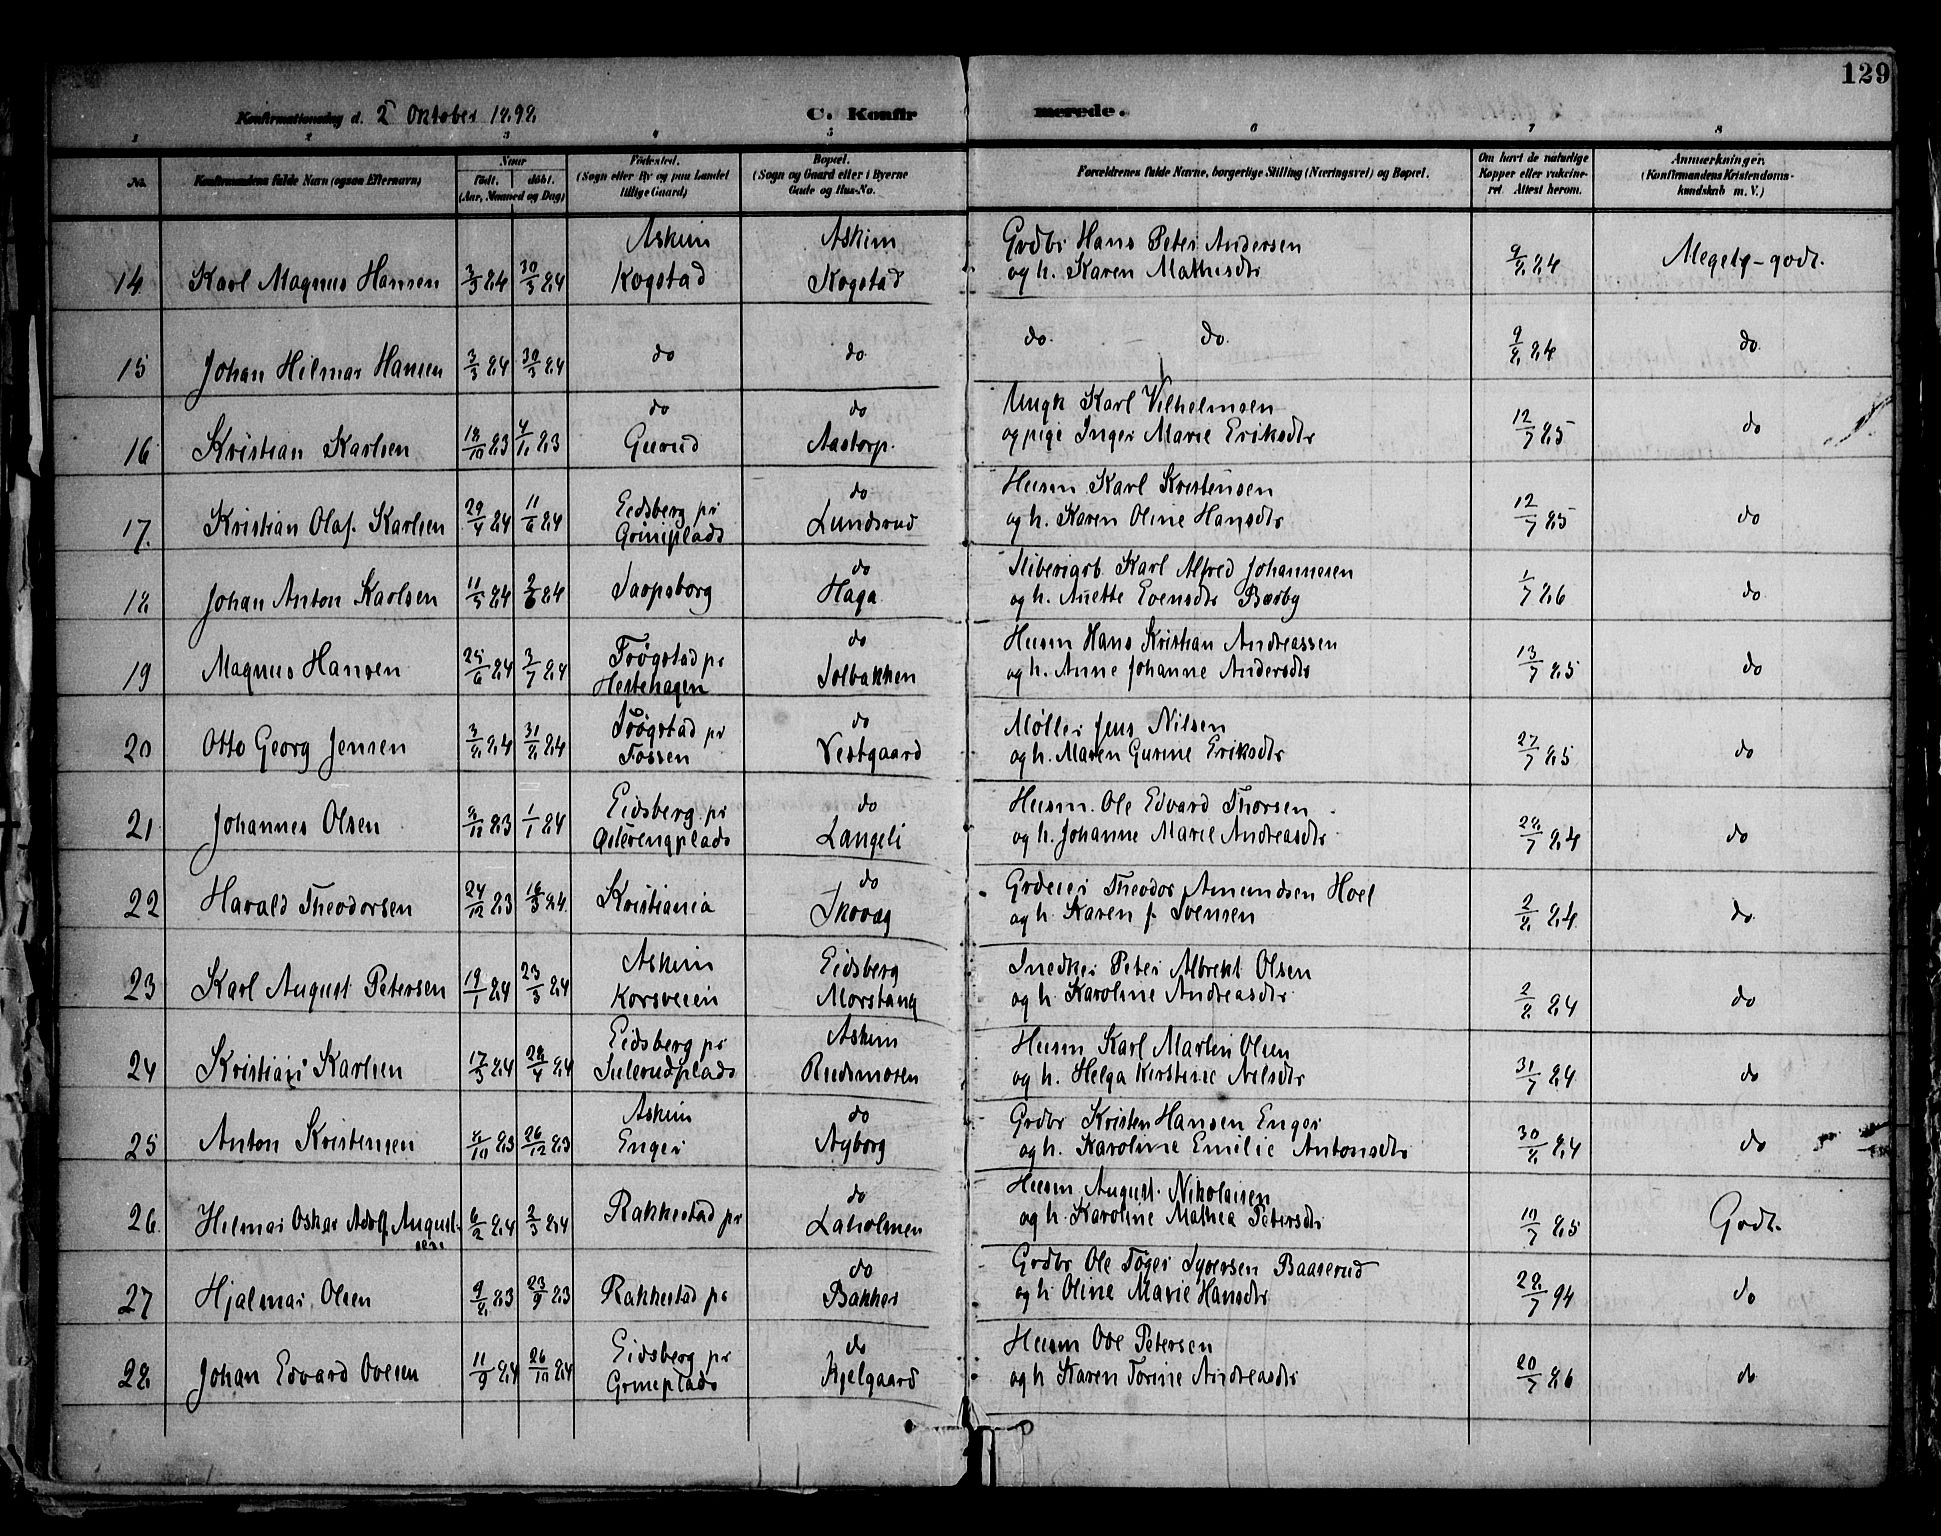 129
Konfirmationsdag d. 2 Oktober 1898.
C. Konfirmerede.
1 2 3 4 5 6 7 8
No. Konfirmandens fulde Navn (ogsaa Efternavn) Naar født. døbt. (Aar, Maaned og Dag) Fødested. (Sogn eller By og paa Landet tillige Gaard) Bopæl. (Sogn og Gaard eller i Byerne Gade og Hus-No. Forældrenes fulde Navne, borgerlige Stilling (Næringsvei) og Bopæl. Om havt de naturlige Kopper eller vakcineret. Attest herom. Anmærkninger. (Konfirmandens Kristendomskundskab m. V.)
14 Karl Magnus Hansen 3/3 84 30/3 84 Askim Kogstad Askim Kogstad Grdbr Hans Peter Andersen og h. Karen Mathisdtr 9/8 84 Meget-godt.
15 Johan Hilmar Hansen 3/3 84 30/3 84 do do do do 9/8 84 do
16 Kristian Karlsen 18/10 83 83 do Gurud do Aastorp. Ungk Karl Vilhelmsen og pige Inger Marie Eriksdtr 12/7 85 do
17. Kristian Olaf Karlsen 29/4 84 11/6 84 Eidsberg pr Griniplads do Lundsrud Husm. Karl Kristensen og h. Karen Oline Hansdtr 12/7 85 do
18 Johan Anton Karlsen 11/5 84 2/6 84 Sarpsborg do Haga Sliberiarb Karl Alfred Johannesen og h. Anette Evensdtr Børby 1/7 86 do
19 Magnus Hansen 25/6 84 2/7 84 Trøgstad pr Hestehagen do Solbakken Husm Hans Kristian Andreassen og h. Anne Johanne Andersdtr 13/7 85 do
20 Otto Georg Jensen 3/8 84 31/8 84 Trøgstad pr Fossen do Vestgaard Møller Jens Nilsen og h. Maren Gurine Eriksdtr 27/7 85 do
21 Johannes Olsen 8/10 83 1/1 84 Eidsberg pr Østerengplads do Langeli Husm. Ole Edvard Thorsen og h. Johanne Marie Andreasdtr 28/7 84 do
22 Harald Theodorsen 24/12 83 16/3 84 Kristiania do Skovag Grdeier Theodor Amundsen Hoel og h. Karen J. Svensen 2/8 84 do
23 Karl August Petersen 19/1 84 23/3 84 Askim Korsveien Eidsberg Morstang Snedker Peter Albrekt Olsen og h. Karoline Andreasdtr 2/8 84 do
24 Kristian Karlsen 17/3 84 28/4 84 Eidsberg pr Sulerudplads Askim Rudsmosen Husm Karl Martin Olsen og h. Helga Kirstine Nilsdtr 31/7 84 do
25 Anton Kristensen 8/10 83 26/12 83 Askim Enger do Nyborg Grdbr Kristen Hansen Enger og h. Karoline Emilie Antonsdtr 30/8 84 do
26 Hilmar Oskar Adolf Augustsen 6/2 84 2/3 84 Rakkestad pr do Laholmen Husm August Nikolaisen og h. Karoline Mathea Petersdtr 10/7 85 Godt.
27 Hjalmar Olsen 9/8 83 23/9 83 Rakkestad pr do Bakker Grdbr Ole Tøger Syversen Baaserud og h Oline Marie Hansdtr 28/7 94 do
28 Johan Edvard Ovesen 11/9 84 26/10 84 Eidsberg pr Griniplads do Kjelgaard Husm Ove Petersen og h Karen Torine Andreasdtr 20/7 86 do